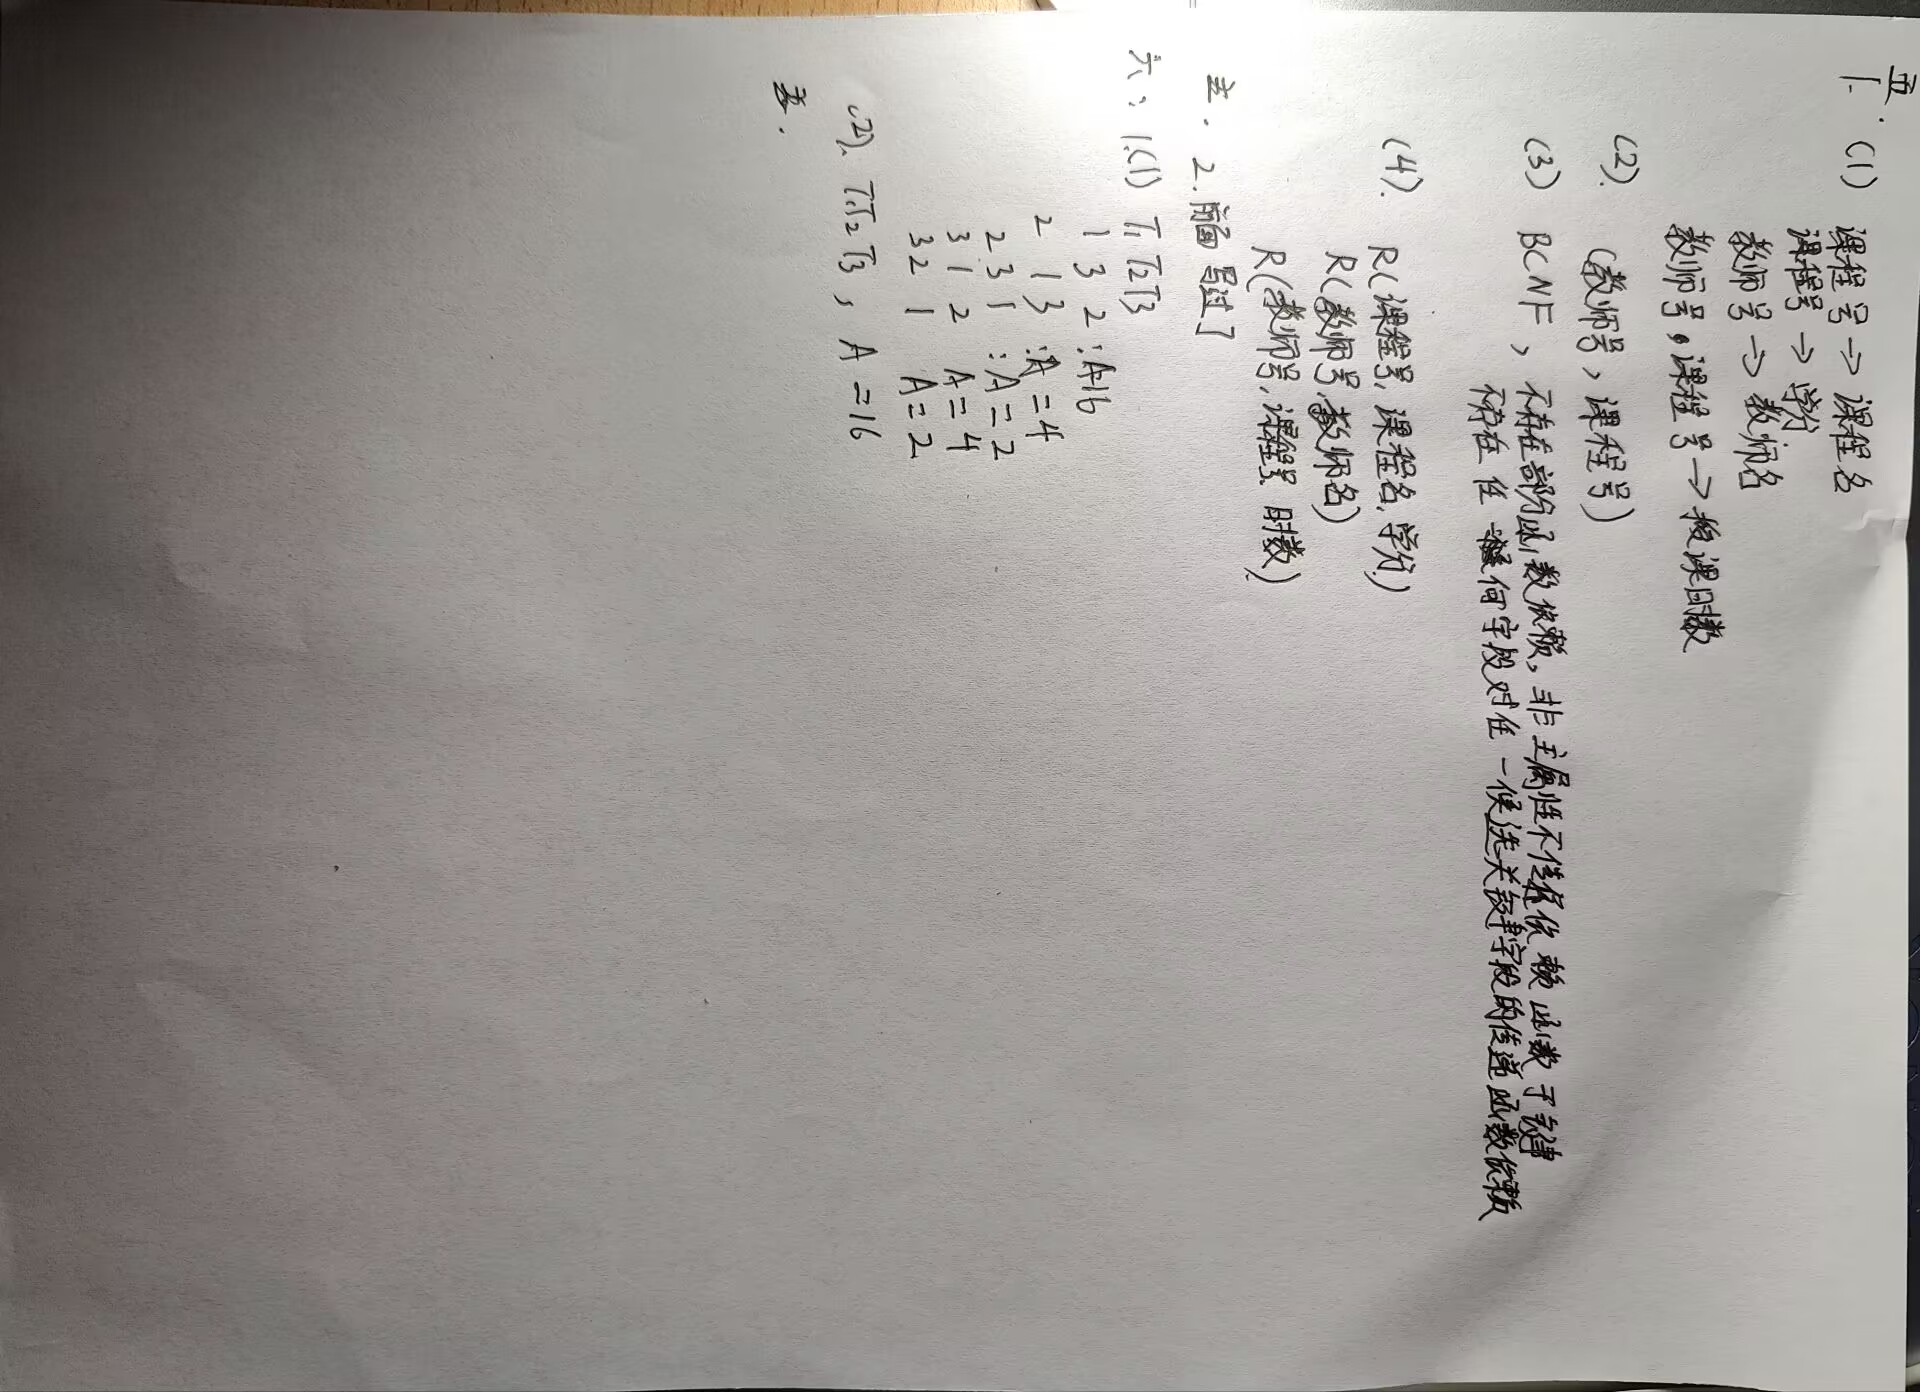 五.
1. (1) 课程号→课程名
课程号→学分.
教师号→教师名
教师号,课程号→授课时数
(2). (教师号,课程号)
(3) BCNF,不存在部分函数依赖,非主属性不传递依赖函数于键
不存在任何字段对任一候选关键字段的传递函数依赖
(4). R(课程号,课程名,学分)
R(教师号,教师名)
R(教师号,课程号,时数)
五. 2.前面写过了
六: 1.(1) T1 T2 T3
1 3 2 :A=16
2 1 3 :A=4
2 3 1 :A=2
3 1 2 A=4
3 2 1 A=2
(2). T1T2T3, A=16
五.